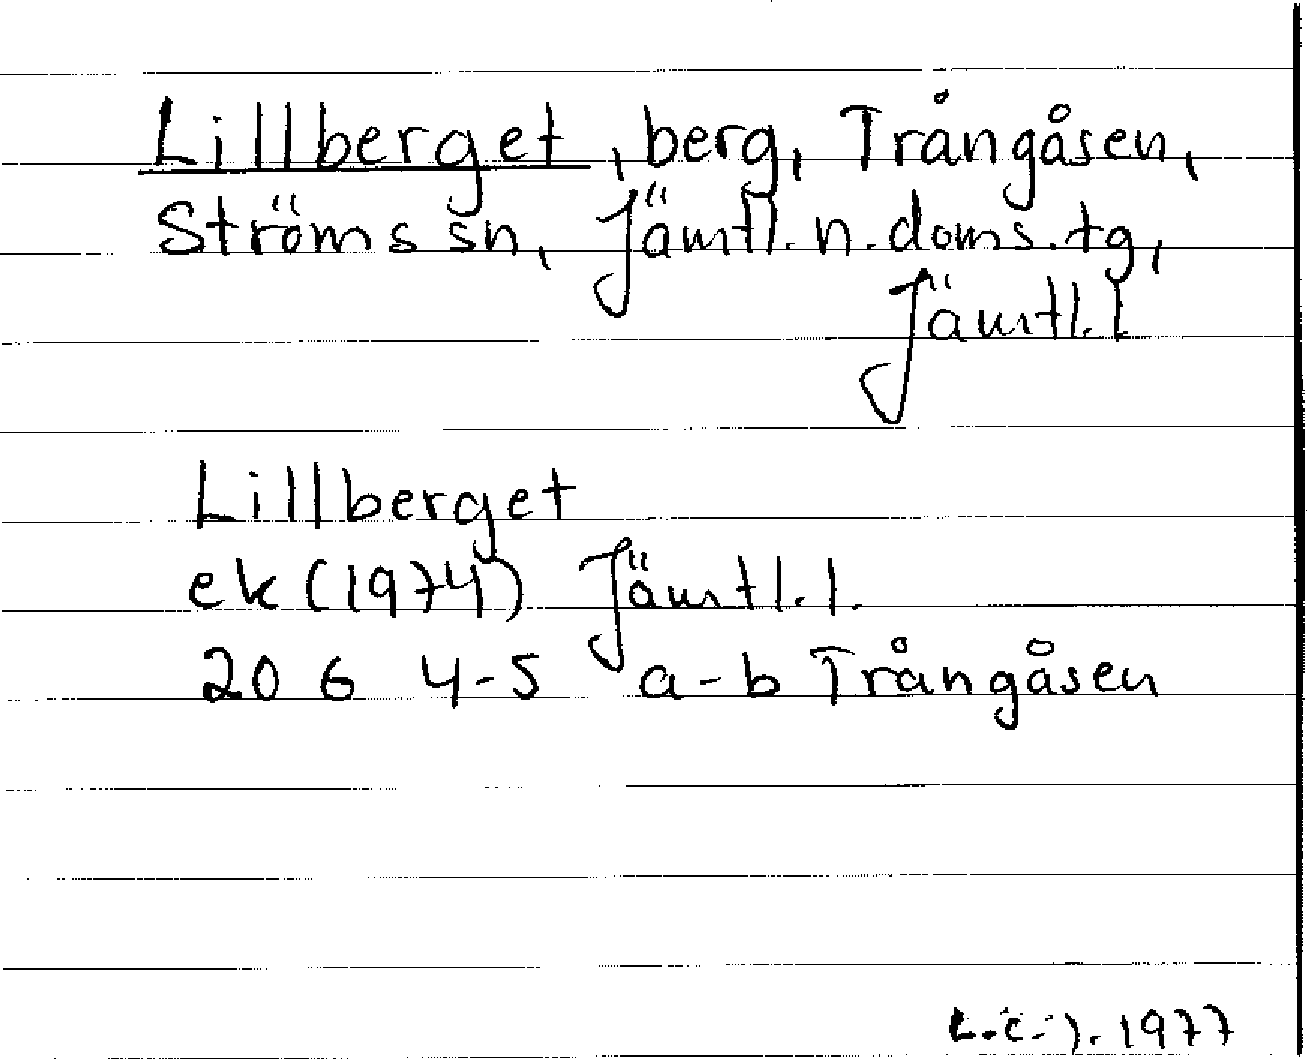 Lillberget, berg, Trångåsen,
Ströms sn, Jämtl. n. doms. tg,
Jämtl. l.
Lillberget
ek (1974) Jämtl. l.
20 G 4-5 a-b Trångåsen
1977